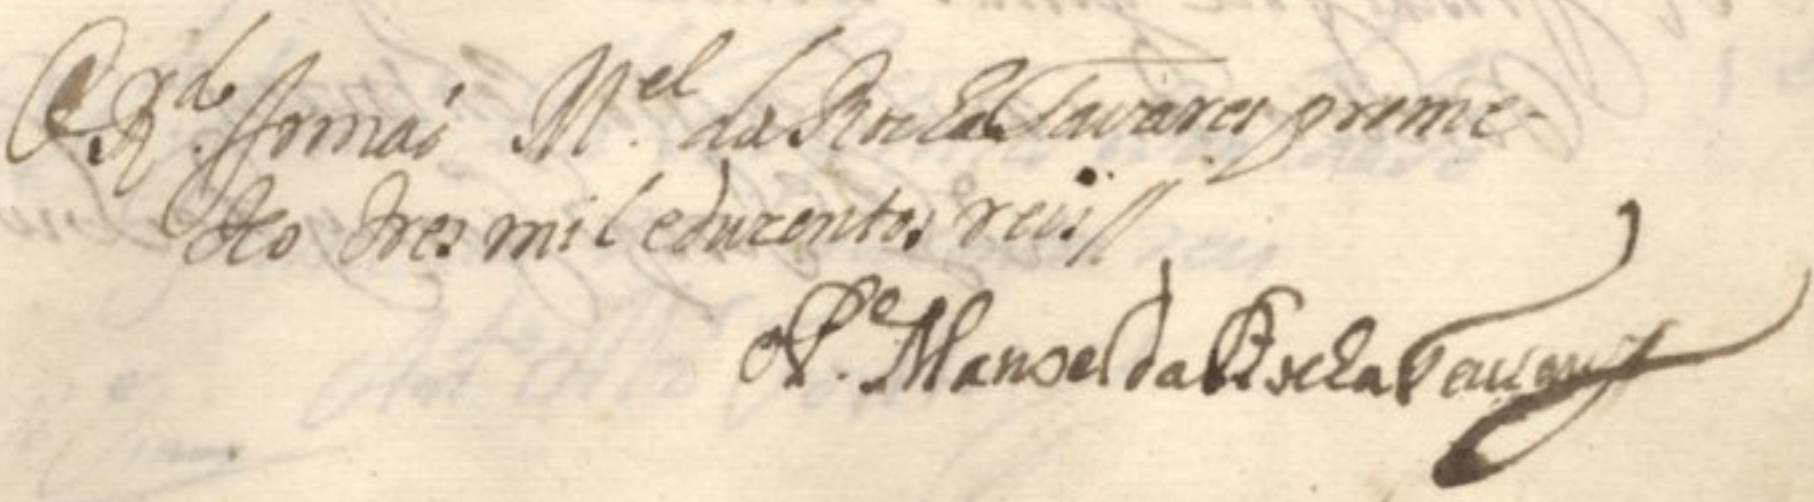 O R.do Irmaõ M.el da Rocha Tavaresprome-
teo tres mil eduzentos reis//
O P.e Manoel da Rocha Tavares